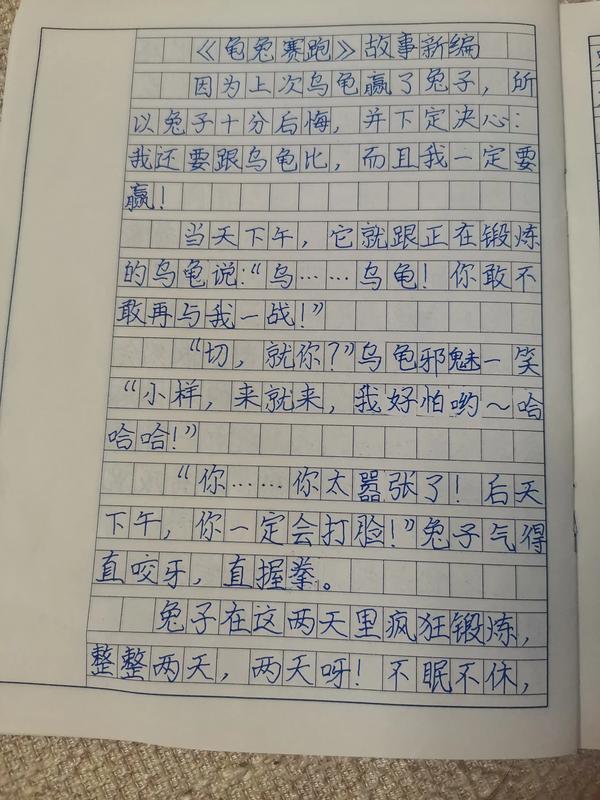 《龟兔赛跑》故事新编
因为上次乌龟赢了兔子，所
以兔子十分后悔，并下定决心：
我还要跟乌龟比，而且我一定要
赢！
当天下午，它就跟正在锻炼
的乌龟说：“乌……乌龟！你敢不
敢再与我一战！”
“切，就你？”乌龟邪魅一笑
“小样，来就来，我好怕哟～哈
哈哈！”
“你……你太嚣张了！后天
下午，你一定会打脸！”兔子气得
直咬牙，直握拳。
兔子在这两天里疯狂锻炼，
整整两天，两天呀！不眠不休，